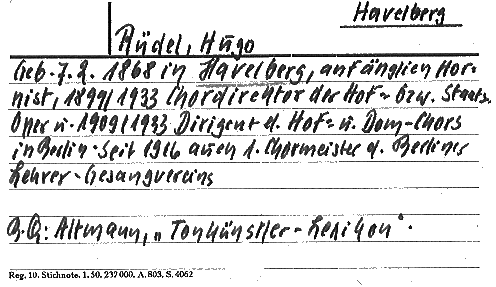 Havelberg
Rüdel, Hugo
Geb. 7. 2. 1868 in Havelberg, anfänglich Hor-
nist, 1899/1933 Chordirektor der Hof- bzw. Staats-
Oper u. 1909/1933 Dirigent d. Hof- u. Dom-Chors
in Berlin. Seit 1916 auch 1. Chormeister d. Berliner
Lehrer-Gesangvereins
B.Q: Altmann, „Tonkünstler-Lexikon".
Reg. 10. Stichnote. 1. 50. 237000. A. 803. S. 4062